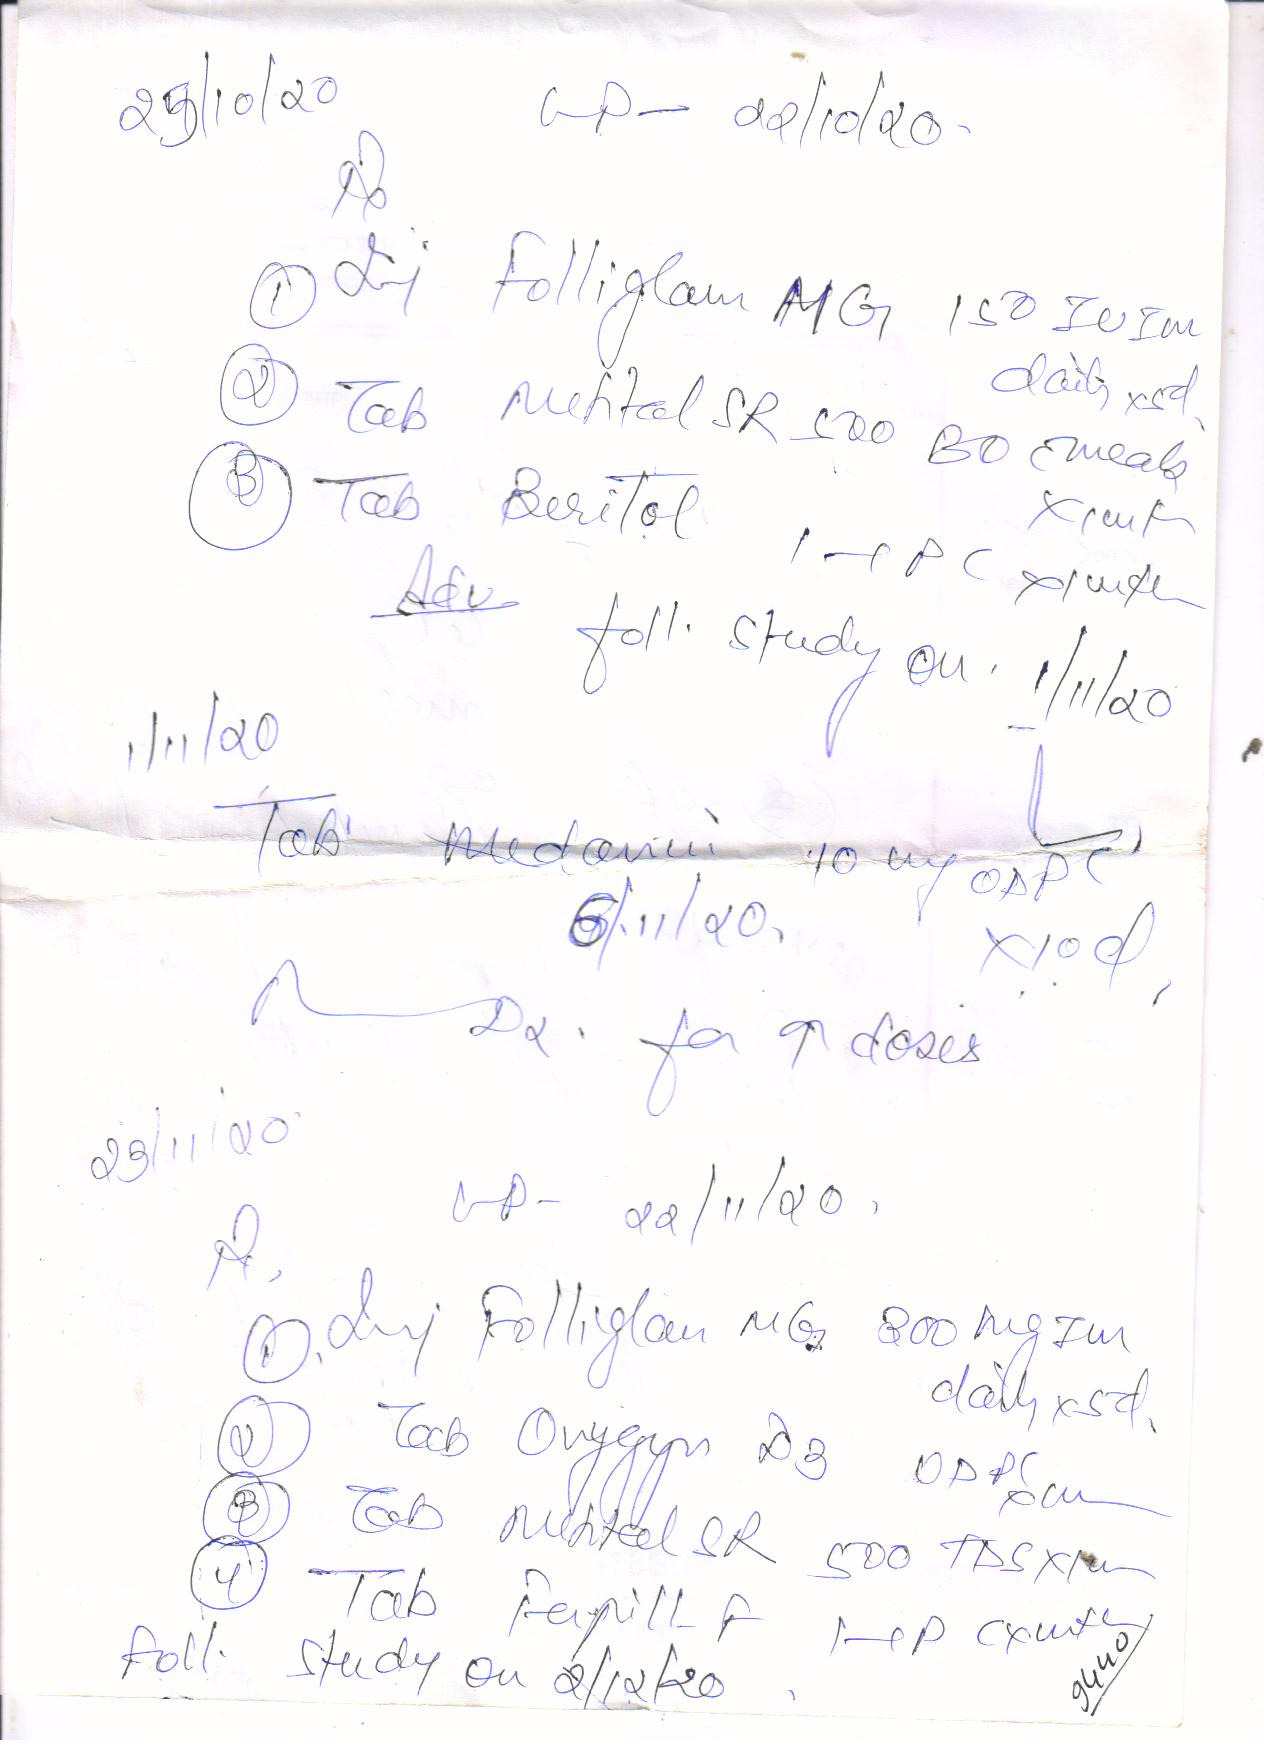 23/10/20 LMP- 22/10/20.
Rx
① Inj Folliglam MG 150 IU Im
daily x5d,
② Tab Metital SR 500 BD c meals
x1mth
③ Tab Beritol 1-1 PC x1mth
Adv
foll. study on. 1/11/20
1/11/20
Tab 10 mg OD PC
x10d,
6/11/20,
Dx. for ↑ doses
23/11/20
LMP- 22/11/20,
Rx,
① Inj Folliglam MG 300 Mg Im
daily x5d,
② Tab D3 OD PC
③ Tab Metital SR 500 TDS x1m
④ Tab Ferpill-F 1-1 PC x1mth
Foll. study on 2/12/20,
9440